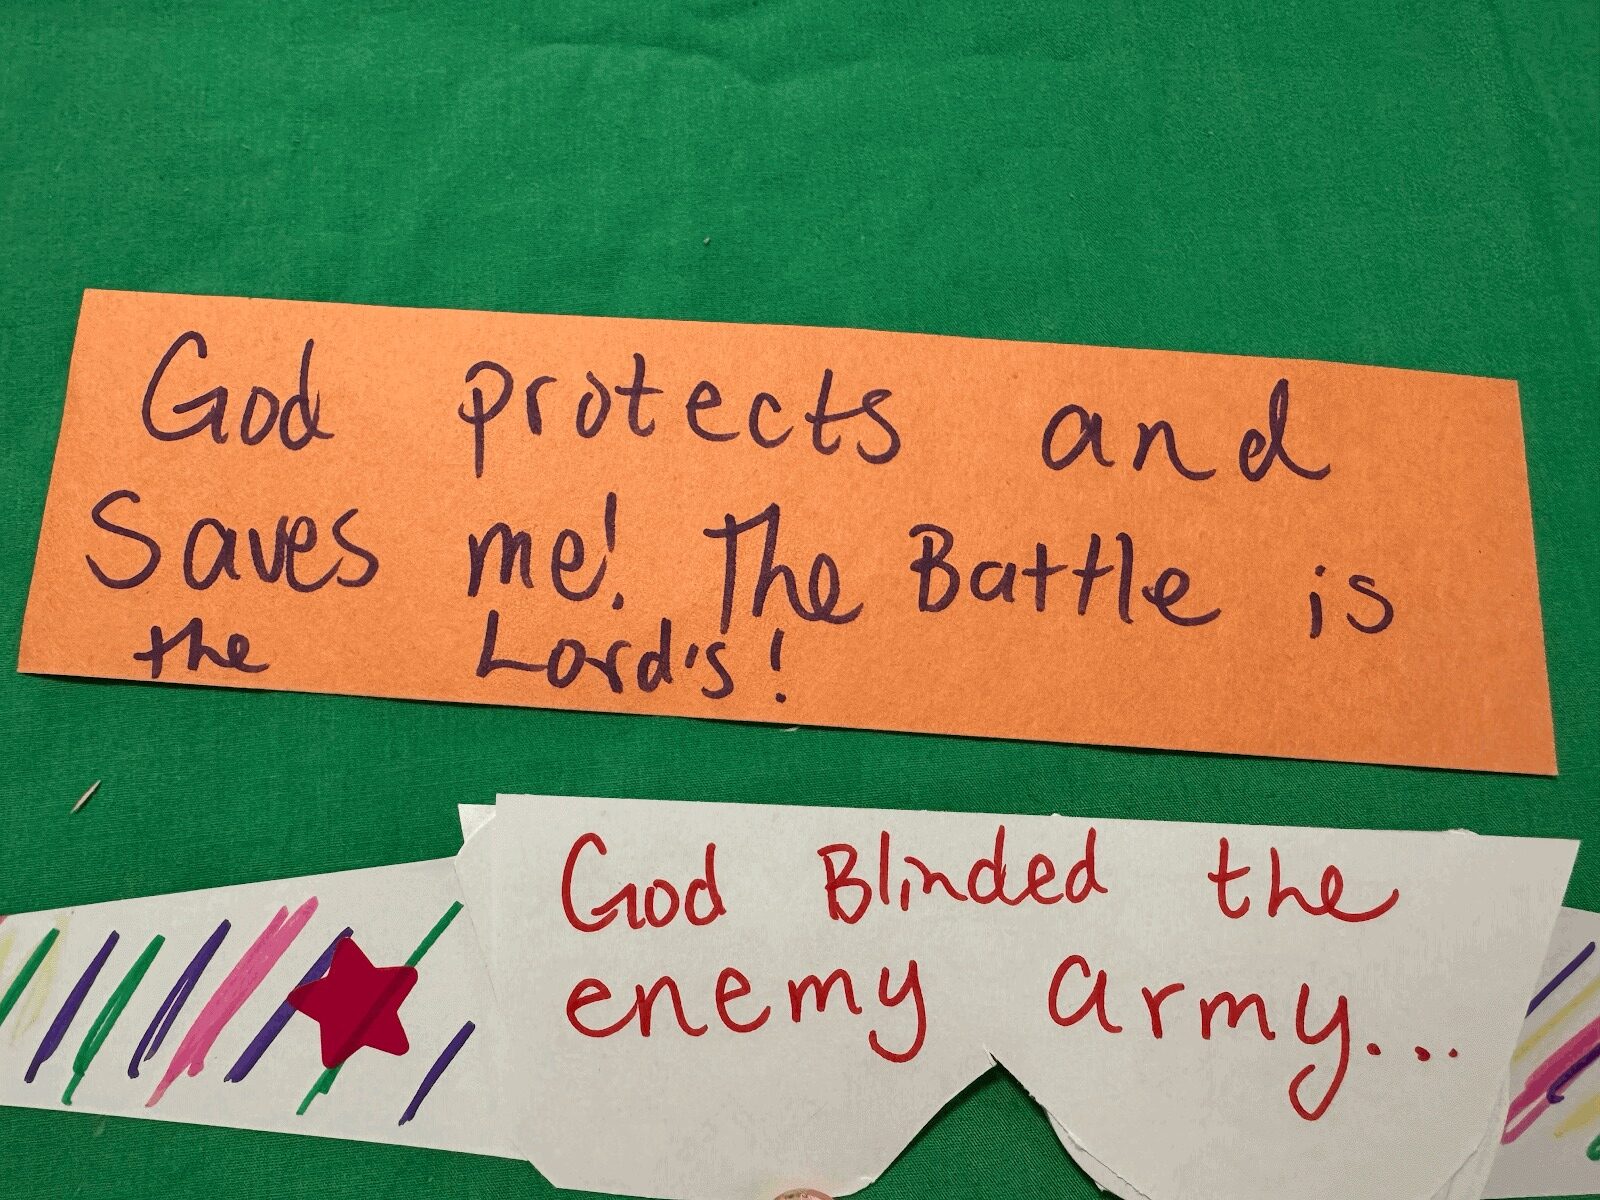 God protects and
Saves me! The Battle is
the Lord's!
God Blinded the
enemy army...